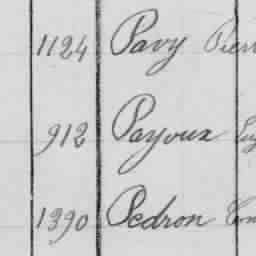 1124 Pavy Pierr
912 Payoux Eug
1390 Pedron Con